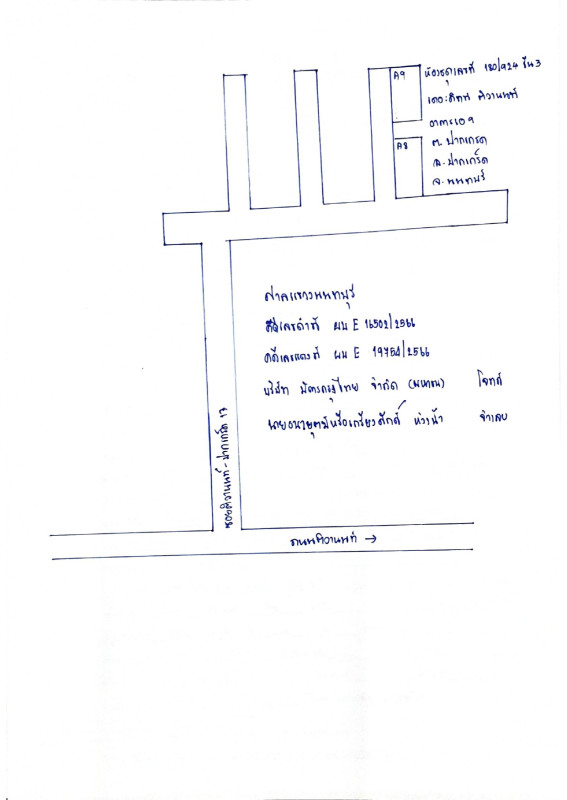 A9
ห้องชุดเลขที่ 180/924 ชั้น 3
เดอะคิทท์ ติวานนท์
อาคารเอ 9
A8
ต. ปากเกร็ด
อ. ปากเกร็ด
จ. นนทบุรี
ศาลแขวงนนทบุรี
คดีเลขดำที่ ผบ E 16502/2566
คดีเลขแดงที่ ผบ E 19754/2566
บริษัท มิตรแท้ จำกัด (มหาชน) โจทก์
นาย หรือเกรียงศักดิ์ ห่วงน้ำ จำเลย
ซอยติวานนท์-ปากเกร็ด 17
ถนนติวานนท์ →